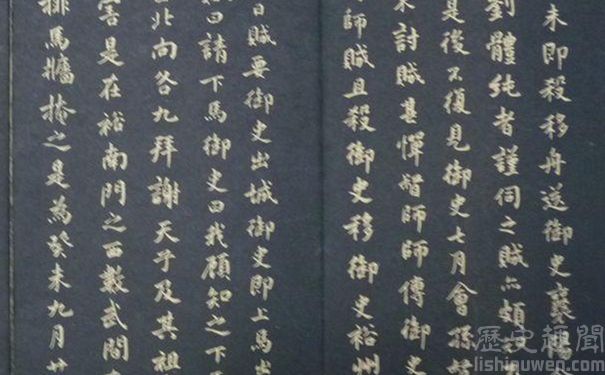 未即殺移舟送御史襄陽
劉體純者謹伺之賊亦頗
是後不復見御史七月會孫
討賊甚憚督師師傳御史
師賊且殺御史移御史裕州
日賊要御史出城御史即上馬
曰請下馬御史曰我顧知之下
北向各九拜謝天子及其祖
害是在裕南門之西數武間
排馬牆掩之是為癸未九月廿
歷史趣聞
lishiquwen.com